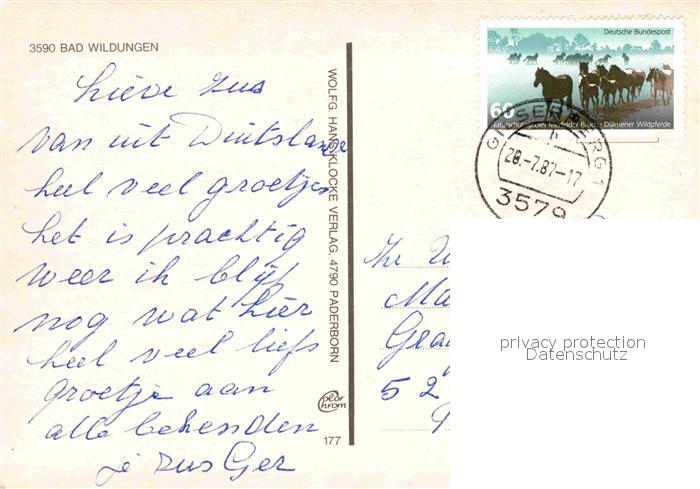 3590 BAD WILDUNGEN
Lieve zus
van uit Duitsland
heel veel groetjes
het is prachtig
weer ik blijf
nog wat hier
heel veel liefs
groetje aan
alle bekenden
je zus Ger
WOLFG. HANS KLOCKE VERLAG, 4790 PADERBORN
Color chrom
177
Deutsche Bundespost
60
Naturschutzgebiet Merfelder Bruch - Dülmener Wildpferde
GILSERBERG 1
28.-7.87-17
3579
Ma
5 2
privacy protection
Datenschutz